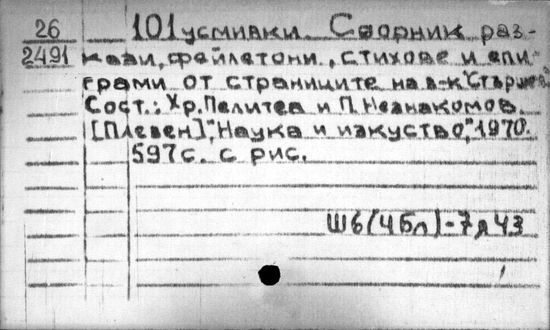 26 101 усмивки. Сборник раз-
2491 кази, фейлетони, стихове и епи-
грами от страниците на в-к "Стършел"
Сост.: Хр. Пелитев и П. Незнакомов.
[Плевен], "Наука и изкуство", 1970.
597 с. с рис.
Ш6(4Бл)-7я43